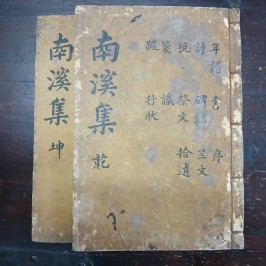 南溪集 乾
年記 書 序
詩 碑銘 三文
祝 祭文 拾遺
箋 識
疏 行狀
南溪集 坤